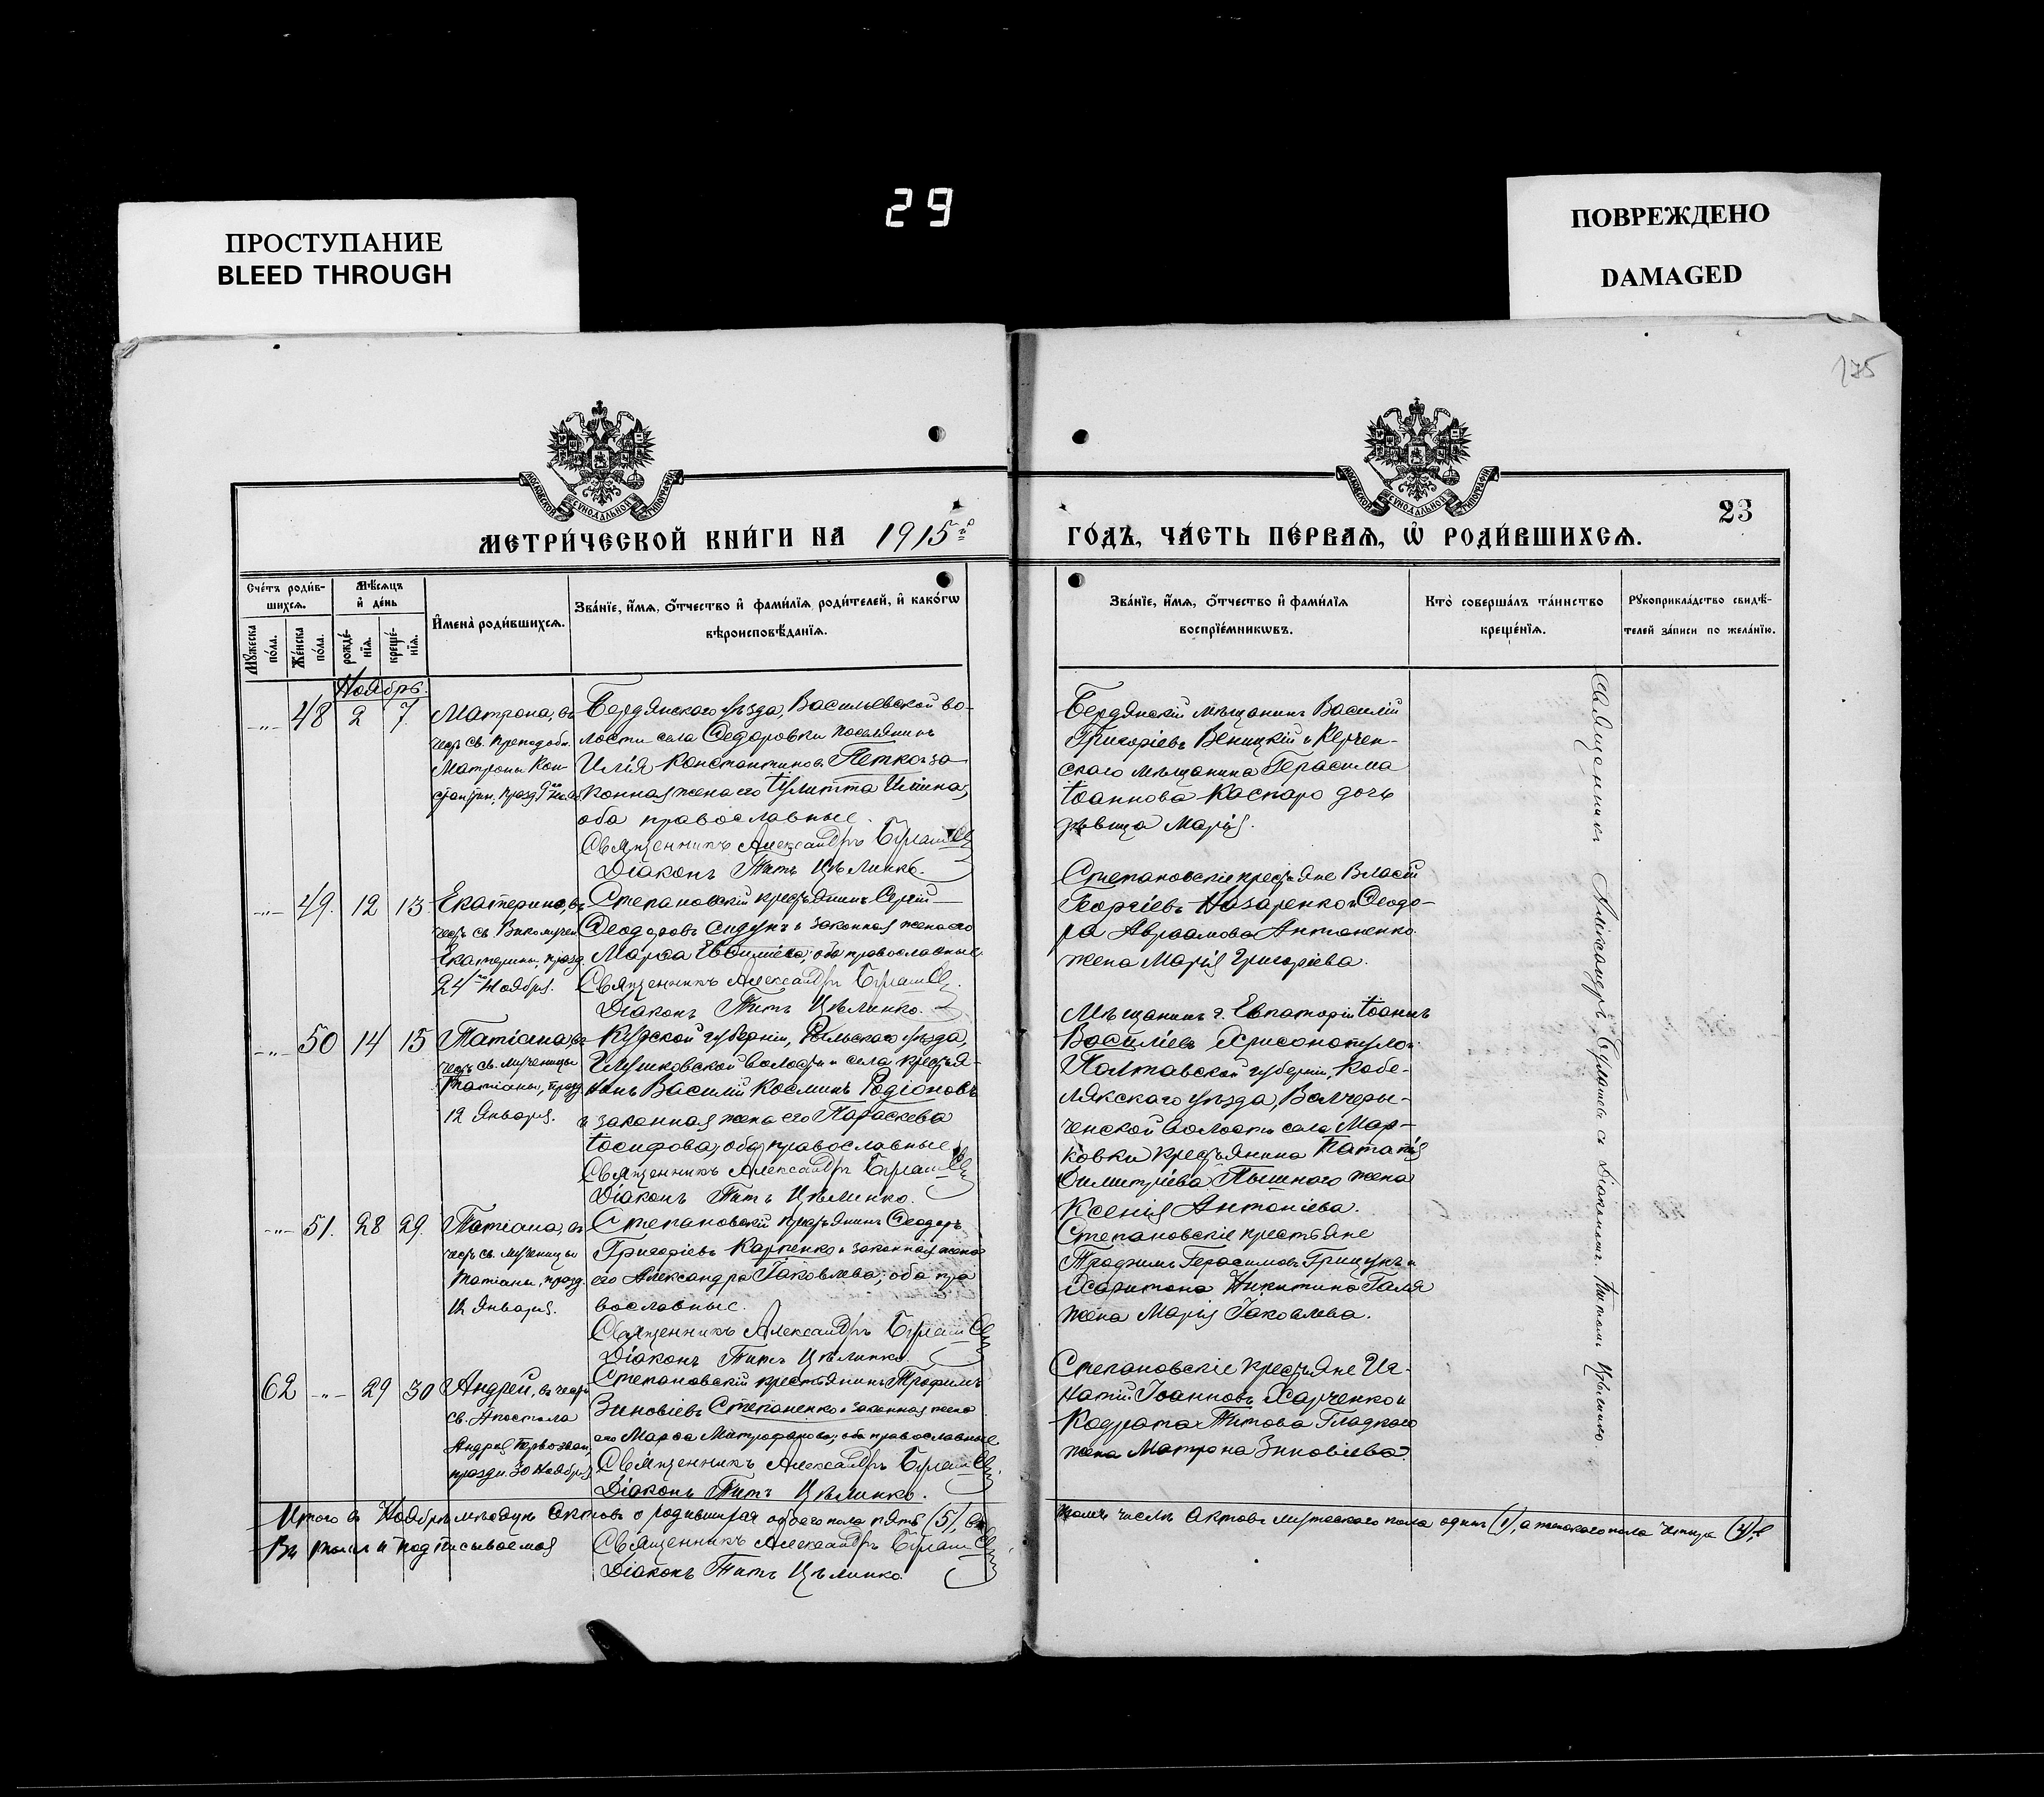 29
ПРОСТУПАНИЕ
BLEED THROUGH
ПОВРЕЖДЕНО
DAMAGED
175
МОСКОВСКОЙ СУНОДАЛЬНОЙ ТИПОГРАФІИ
МОСКОВСКОЙ СУНОДАЛЬНОЙ ТИПОГРАФІИ
23
МЕТРИ́ЧЕСКОЙ КНИ́ГИ НА 1915 г.
ГО́ДЪ, ЧА́СТЬ ПЕ́РВАѦ, Ѡ҆ РОДИ́ВШИХСѦ.
Сче́тъ роди́в-
шихсѧ.
Мѣ́сѧцъ
и҆ де́нь
Мꙋ́жеска по́ла.
Же́нска по́ла.
рожде́-
нїѧ.
креще́-
нїѧ.
И҆мена̀ роди́вшихсѧ.
Зва́нїе, и҆́мѧ, ѻ҆́тчество и҆ фами́лїѧ роди́телей, и҆ како́гѡ
вѣроисповѣ́данїѧ.
Зва́нїе, и҆́мѧ, ѻ҆́тчество и҆ фами́лїѧ
воспрїе́мникѡвъ.
Кто̀ соверша́лъ та́инство
креще́нїѧ.
Рꙋкоприкла́дство свидѣ́-
телей за́писи по жела́нїю.
Ноябрь.
-„- 48 2 7
Матрона, въ
честь св. преподобн.
Матроны Кон-
стантин., празд. 9го Нояб.
Бердянскаго уѣзда, Васильевской во-
лости села Ѳедоровки поселянинъ
Илія Константиновъ Петко и за-
конная жена его Іулитта Ильина,
оба православные.
Священникъ Александръ
Діаконъ Титъ Цѣлинко.
Бердянскій мѣщанинъ Василій
Григоріевъ Веницкій и Керчен-
скаго мѣщанина Герасима
Іоаннова Каспаро дочь
дѣвица Марія.
-„- 49. 12 13
Екатерина, въ
честь св. Великомучен.
Екатерины, празд.
24го Ноября.
Степановскій крестьянинъ Сергій
Ѳеодоровъ и законная жена его
Марѳа Евѳиміева, оба православные
Священникъ Александръ
Діаконъ Титъ Цѣлинко.
Степановскіе крестьяне Власій
Георгіевъ Назаренко и Ѳеодо-
ра Авраамова Антоненко
жена Марія Григоріева.
-„- 50 14 15
Татіана, въ
честь св. мученицы
Татіаны, празд.
12 Января.
Курской губерніи, Рыльскаго уѣзда,
волости и села крестья-
нинъ Василій Косминъ Родіоновъ
и законная жена его Параскева
Іосифова, оба православные
Священникъ Александръ
Діаконъ Титъ Цѣлинко.
Мѣщанинъ г. Евпаторіи Іоаннъ
Василіевъ Хрисопопуло и
Полтавской губерніи, Кобе-
лякскаго уѣзда,
волости села Мар-
ковки крестьянина
Димитріева Пышнаго жена
Ксенія Антоніева.
-„- 51. 28 29.
Татіана, въ
честь св. мученицы
Татіаны, празд.
12 Января.
Степановскій крестьянинъ Ѳеодоръ
Григоріевъ Карпенко и законная жена
его Александра Іаковлева; оба пра
вославные.
Священникъ Александръ
Діаконъ Титъ Цѣлинко.
Степановскіе крестьяне
Трофимъ Герасимовъ Грицунъ и
Харитона Никитина Галя
жена Марія Іаковлева.
62 -„- 29 30
Андрей, въ честь
св. Апостола
Андрея Первозван.
праздн. 30 Ноября
Степановскій крестьянинъ Трофимъ
Зиновіевъ Степаненко и законная жена
его Марѳа Митрофанова; оба православные
Священникъ Александръ
Діаконъ Титъ Цѣлинко.
Степановскіе крестьяне Иг-
натій Іоанновъ Харченко и
Кодрата Титова Гладкаго
жена Матрона Зиновіева.
Священникъ Александръ съ Діакономъ Титомъ Цѣлинко
Итого въ Ноябрѣ мѣсяцѣ актовъ о родившихся обоего пола пять (5), въ
томъ числѣ актовъ мужескаго пола одинъ (1), а женскаго пола четыре (4).
Въ томъ и подписываемся
Священникъ Александръ
Діаконъ Титъ Цѣлинко.